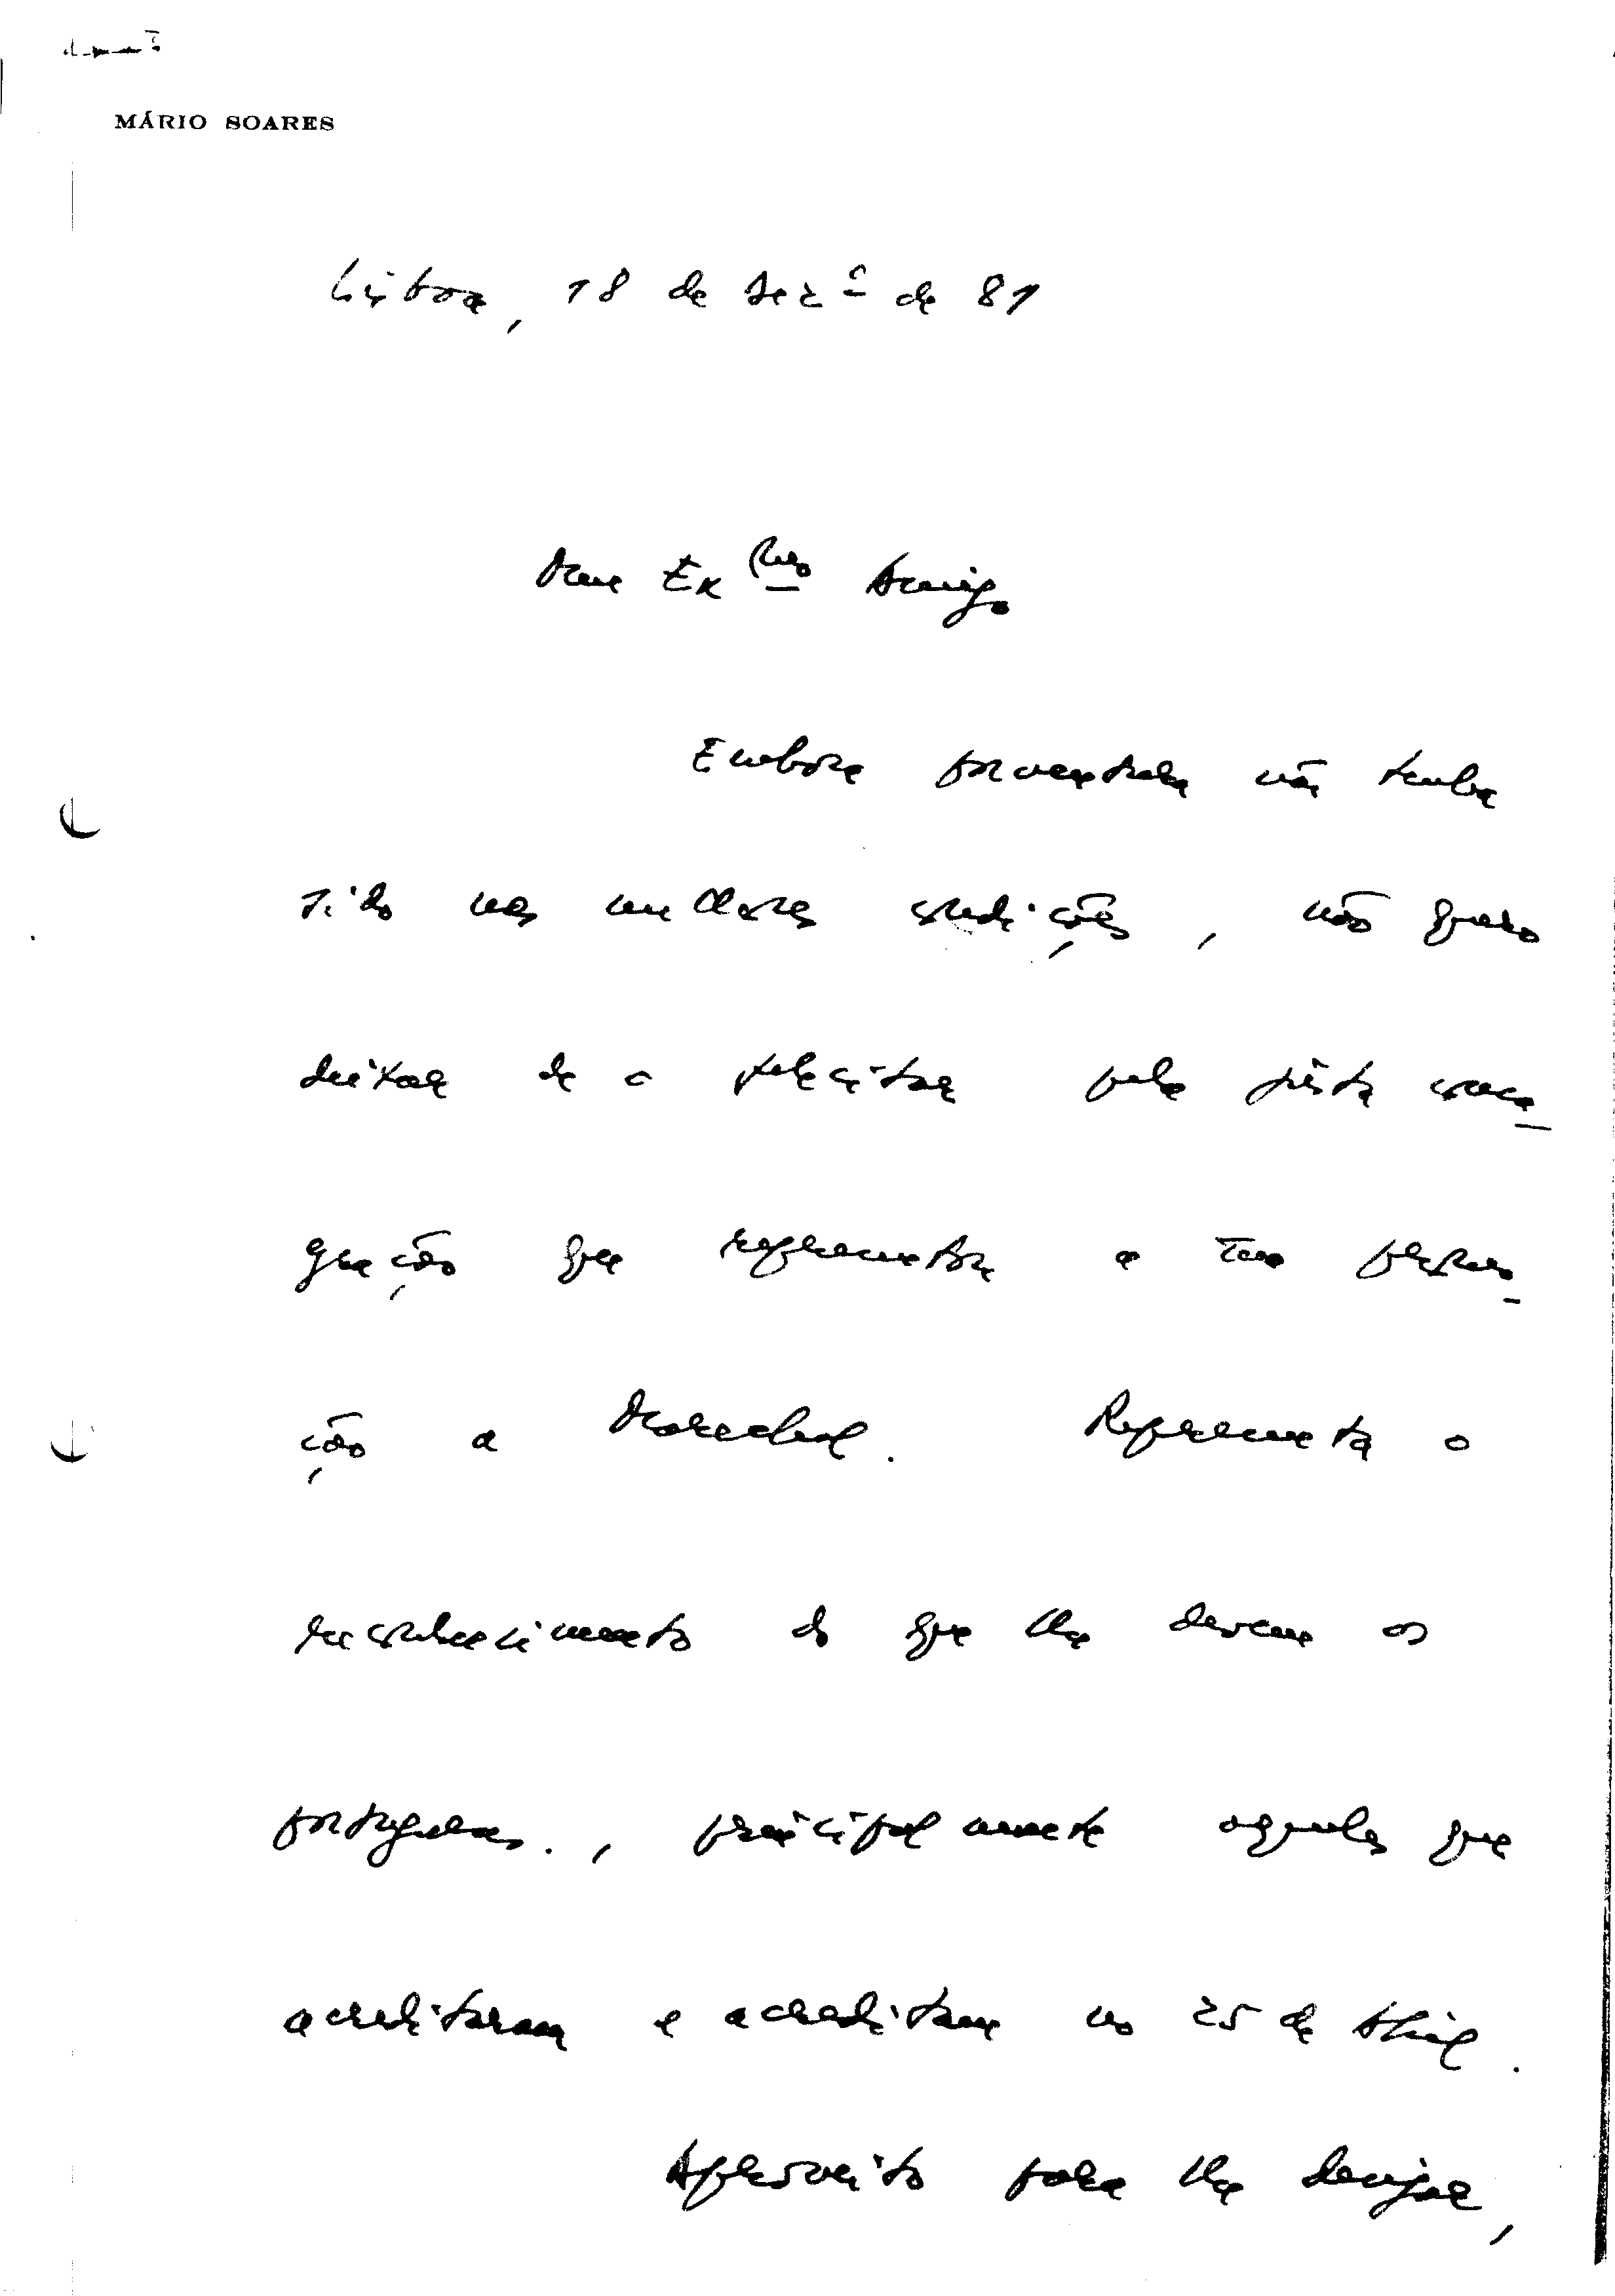 MÁRIO SOARES
Lisboa, 18 de Dezº de 81
Meu Exmo Amigo
Embora porventura não tenha
sido nas melhores condições, não quero
deixar de o felicitar pela justa consa-
gração que representa a sua promo-
ção a Marechal. Representa o
reconhecimento do que lhe devem os
portugueses., principalmente aqueles que
acreditaram e acreditam no 25 de Abril.
Aproveito para lhe desejar,